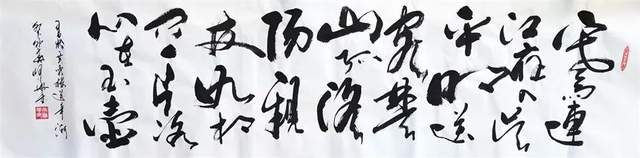 寒雨連
江夜入吴
平明送
客楚
山孤洛
陽親
友如相
问一片冰
心在玉壺
王昌龄芙蓉楼送辛渐